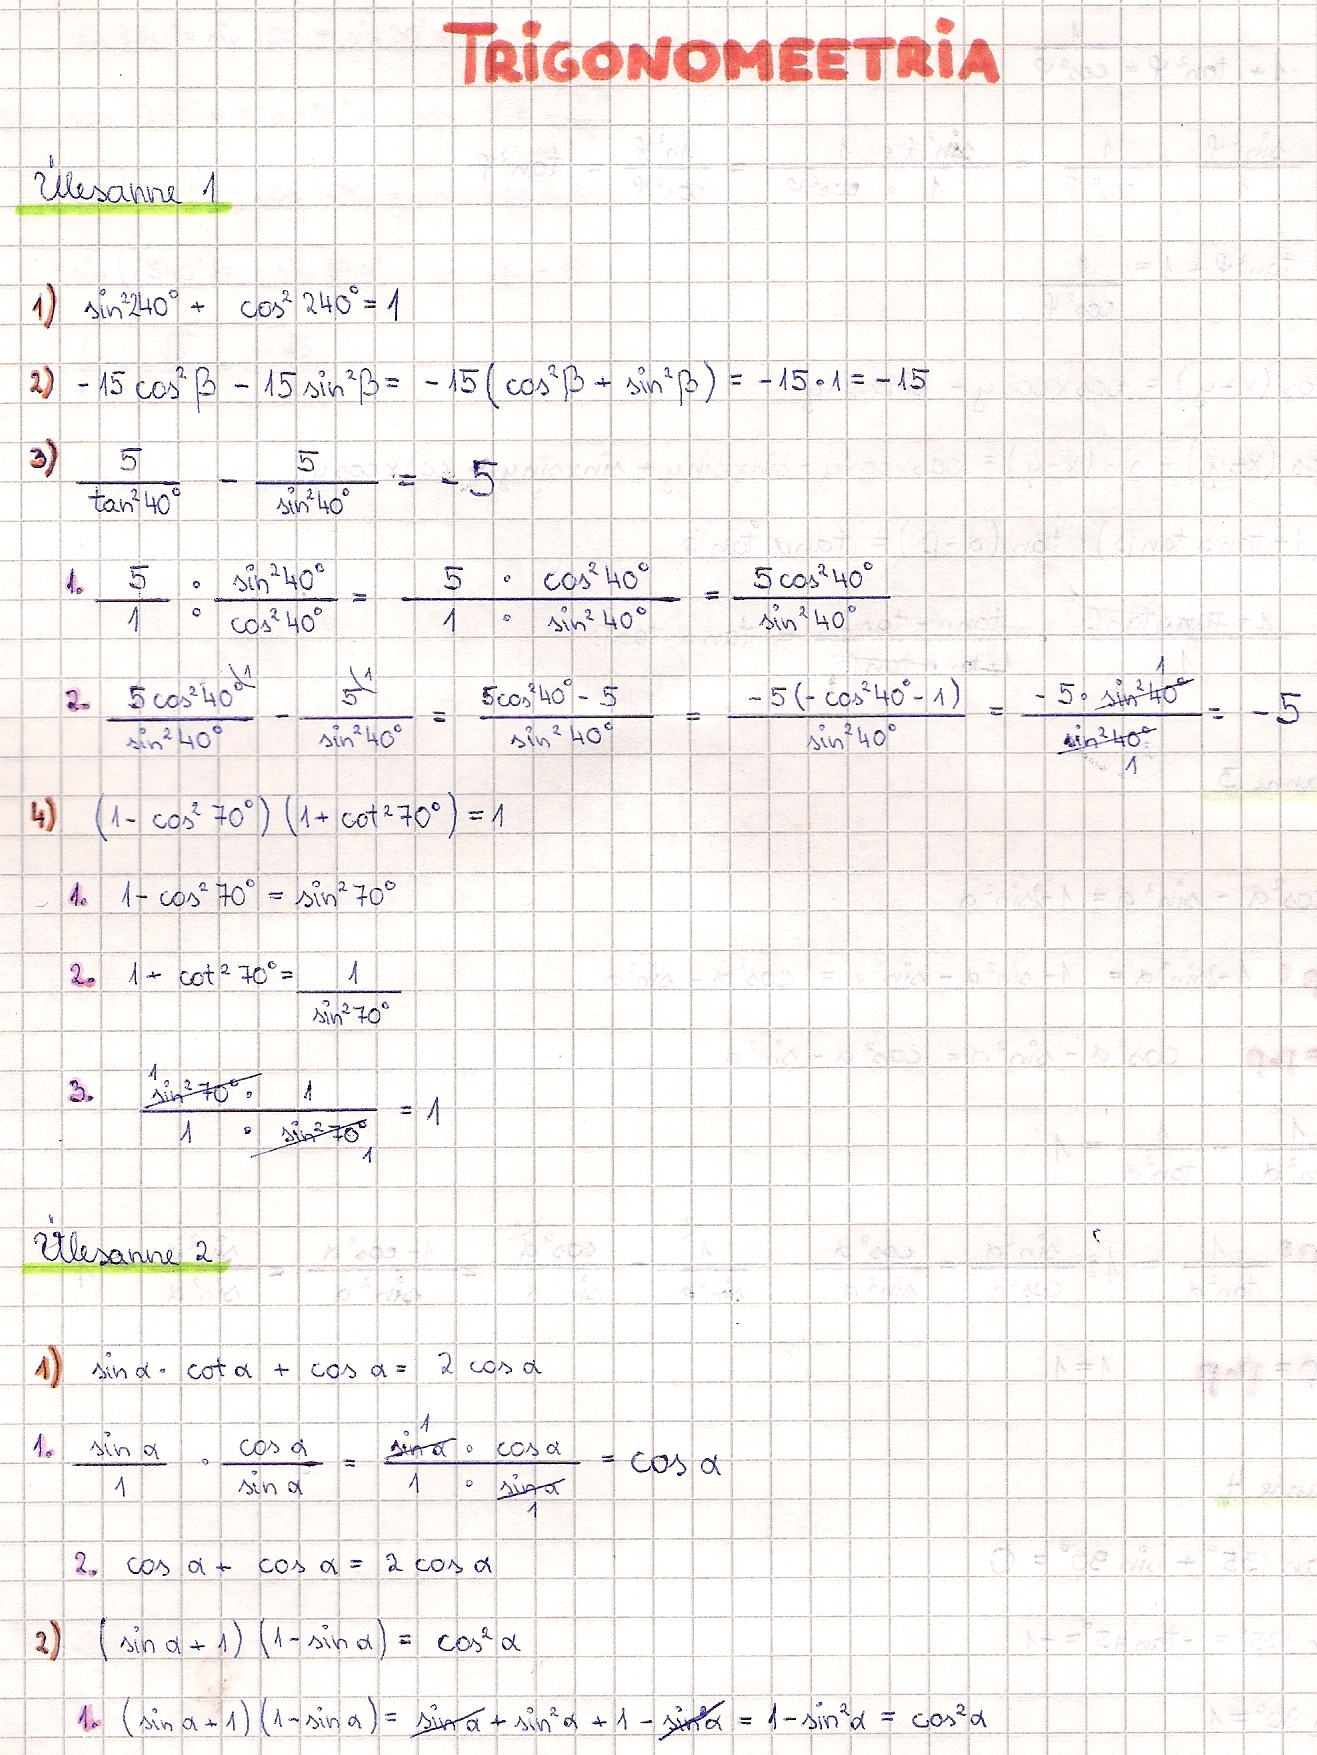 TRIGONOMEETRIA
Ülesanne 1
1) sin²240° + cos² 240° = 1
2) -15 cos²β - 15 sin²β = -15 (cos²β + sin²β) = -15 · 1 = -15
3) 5/tan²40° - 5/sin²40° = -5
1. 5/1 : sin²40°/cos²40° = 5 · cos²40°/1 · sin²40° = 5cos²40°/sin²40°
2. 5cos²40°/sin²40° - 5/sin²40° = 5cos²40° - 5/sin²40° = -5(-cos²40° - 1)/sin²40° = -5 · sin²40°/sin²40° = -5
4) (1 - cos² 70°) (1 + cot² 70°) = 1
1. 1 - cos² 70° = sin² 70°
2. 1 + cot² 70° = 1/sin²70°
3. sin² 70° · 1/1 · sin² 70° = 1
Ülesanne 2
1) sin α · cot α + cos α = 2 cos α
1. sin α/1 · cos α/sin α = sin α · cos α/1 · sin α = cos α
2. cos α + cos α = 2 cos α
2) (sin α + 1) (1 - sin α) = cos² α
1. (sin α + 1) (1 - sin α) = sin α + sin²α + 1 - sin²α = 1 - sin²α = cos²α